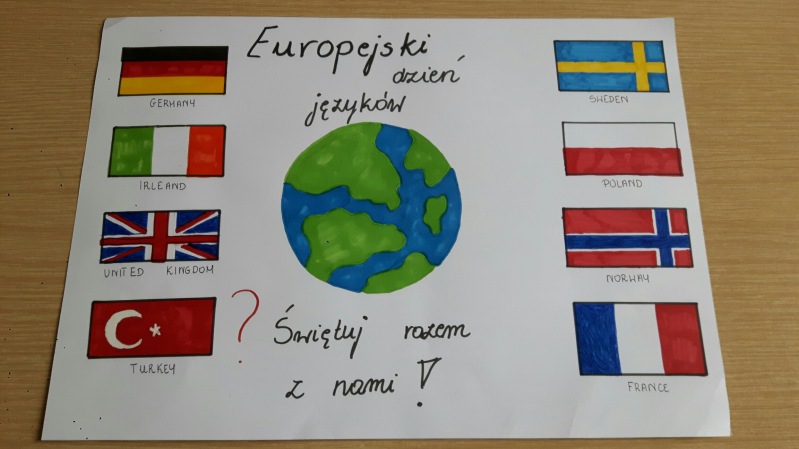 Europejski
dzień
języków
GERMANY
IRLEAND
UNITED KINGDOM
TURKEY
?
SWEDEN
POLAND
NORWAY
FRANCE
Świętuj razem
z nami!